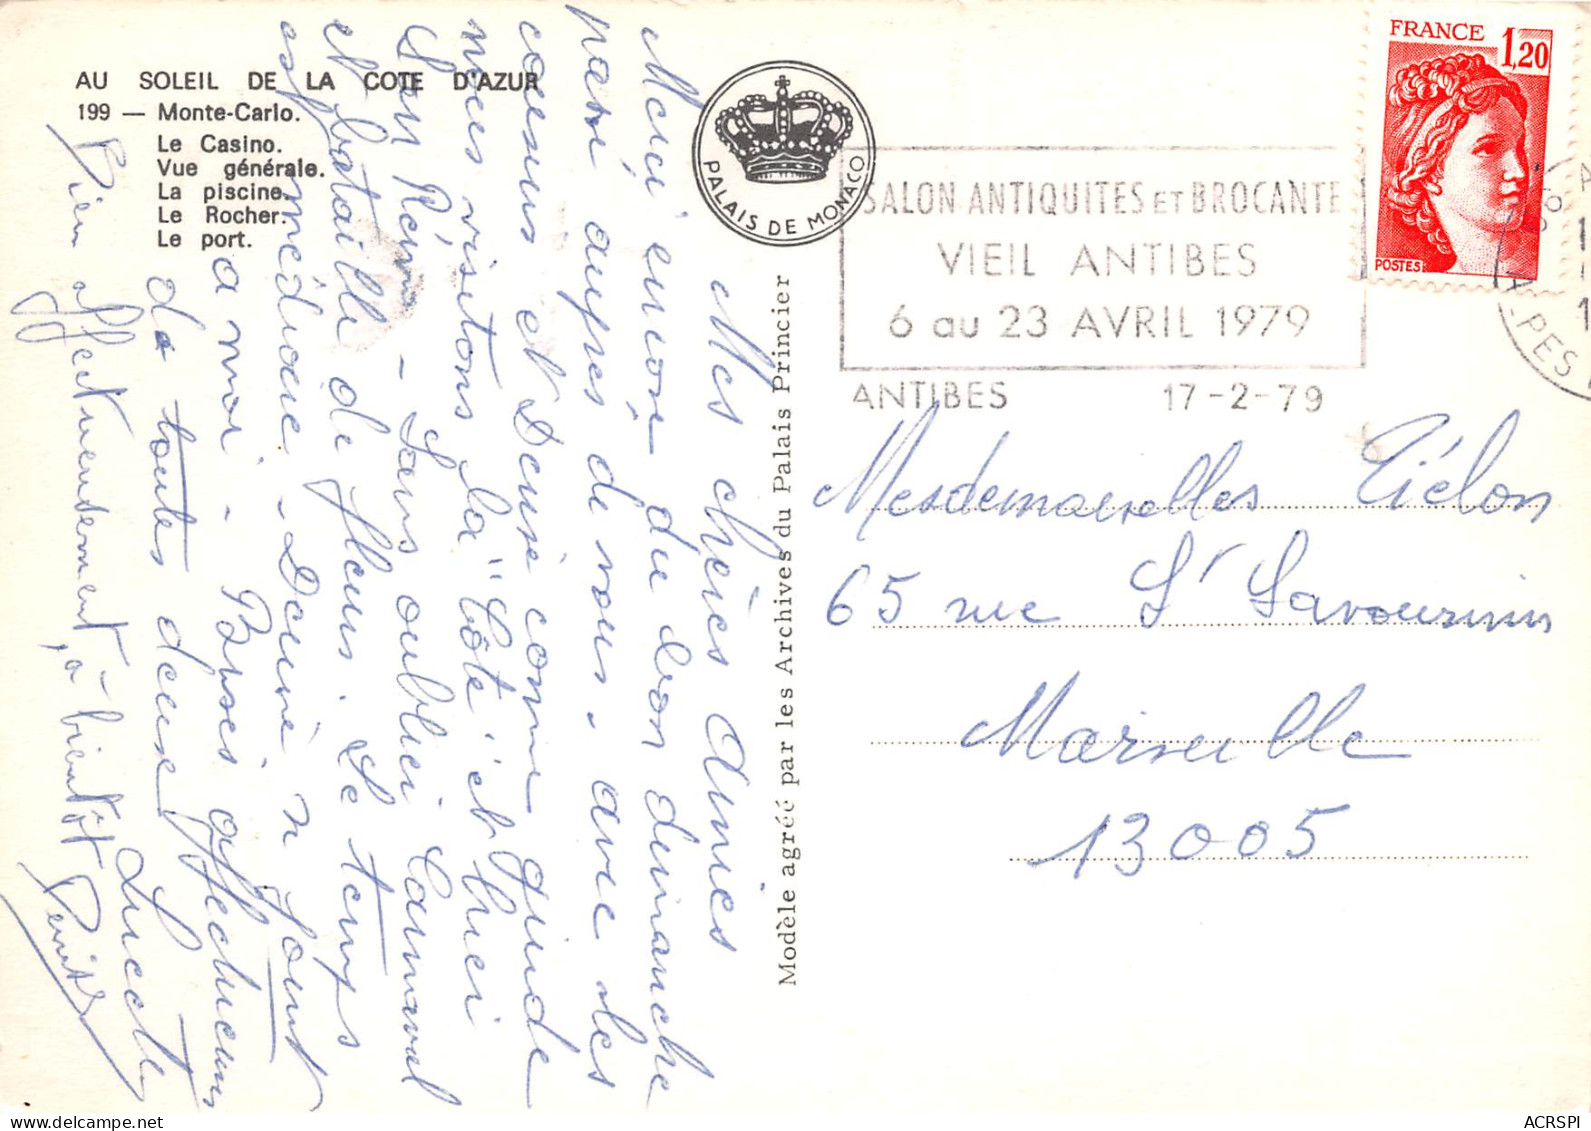 AU SOLEIL DE LA COTE D'AZUR
199 — Monte-Carlo.
Le Casino.
Vue générale.
La piscine.
Le Rocher.
Le port.
PALAIS DE MONACO
Modèle agréé par les Archives du Palais Princier
Mes chères Amies
Merci encore du bon dimanche
passé auprès de vous. avec les
cousins et Denise comme guide
nous visitons la "Côte" et hier
San Remo - Sans oublier Carnaval
et bataille de fleurs. Le temps
est médiocre. Denise se joint
a moi - Baisers affectueux
de toutes deux
Lucette
Bien affectueusement, à bientôt
FRANCE 1,20
POSTES
SALON ANTIQUITES ET BROCANTE
VIEIL ANTIBES
6 au 23 AVRIL 1979
ANTIBES 17-2-79
Mesdemoiselles Piélon
65 rue St Savournin
Marseille
13005
delcampe.net
ACRSPI